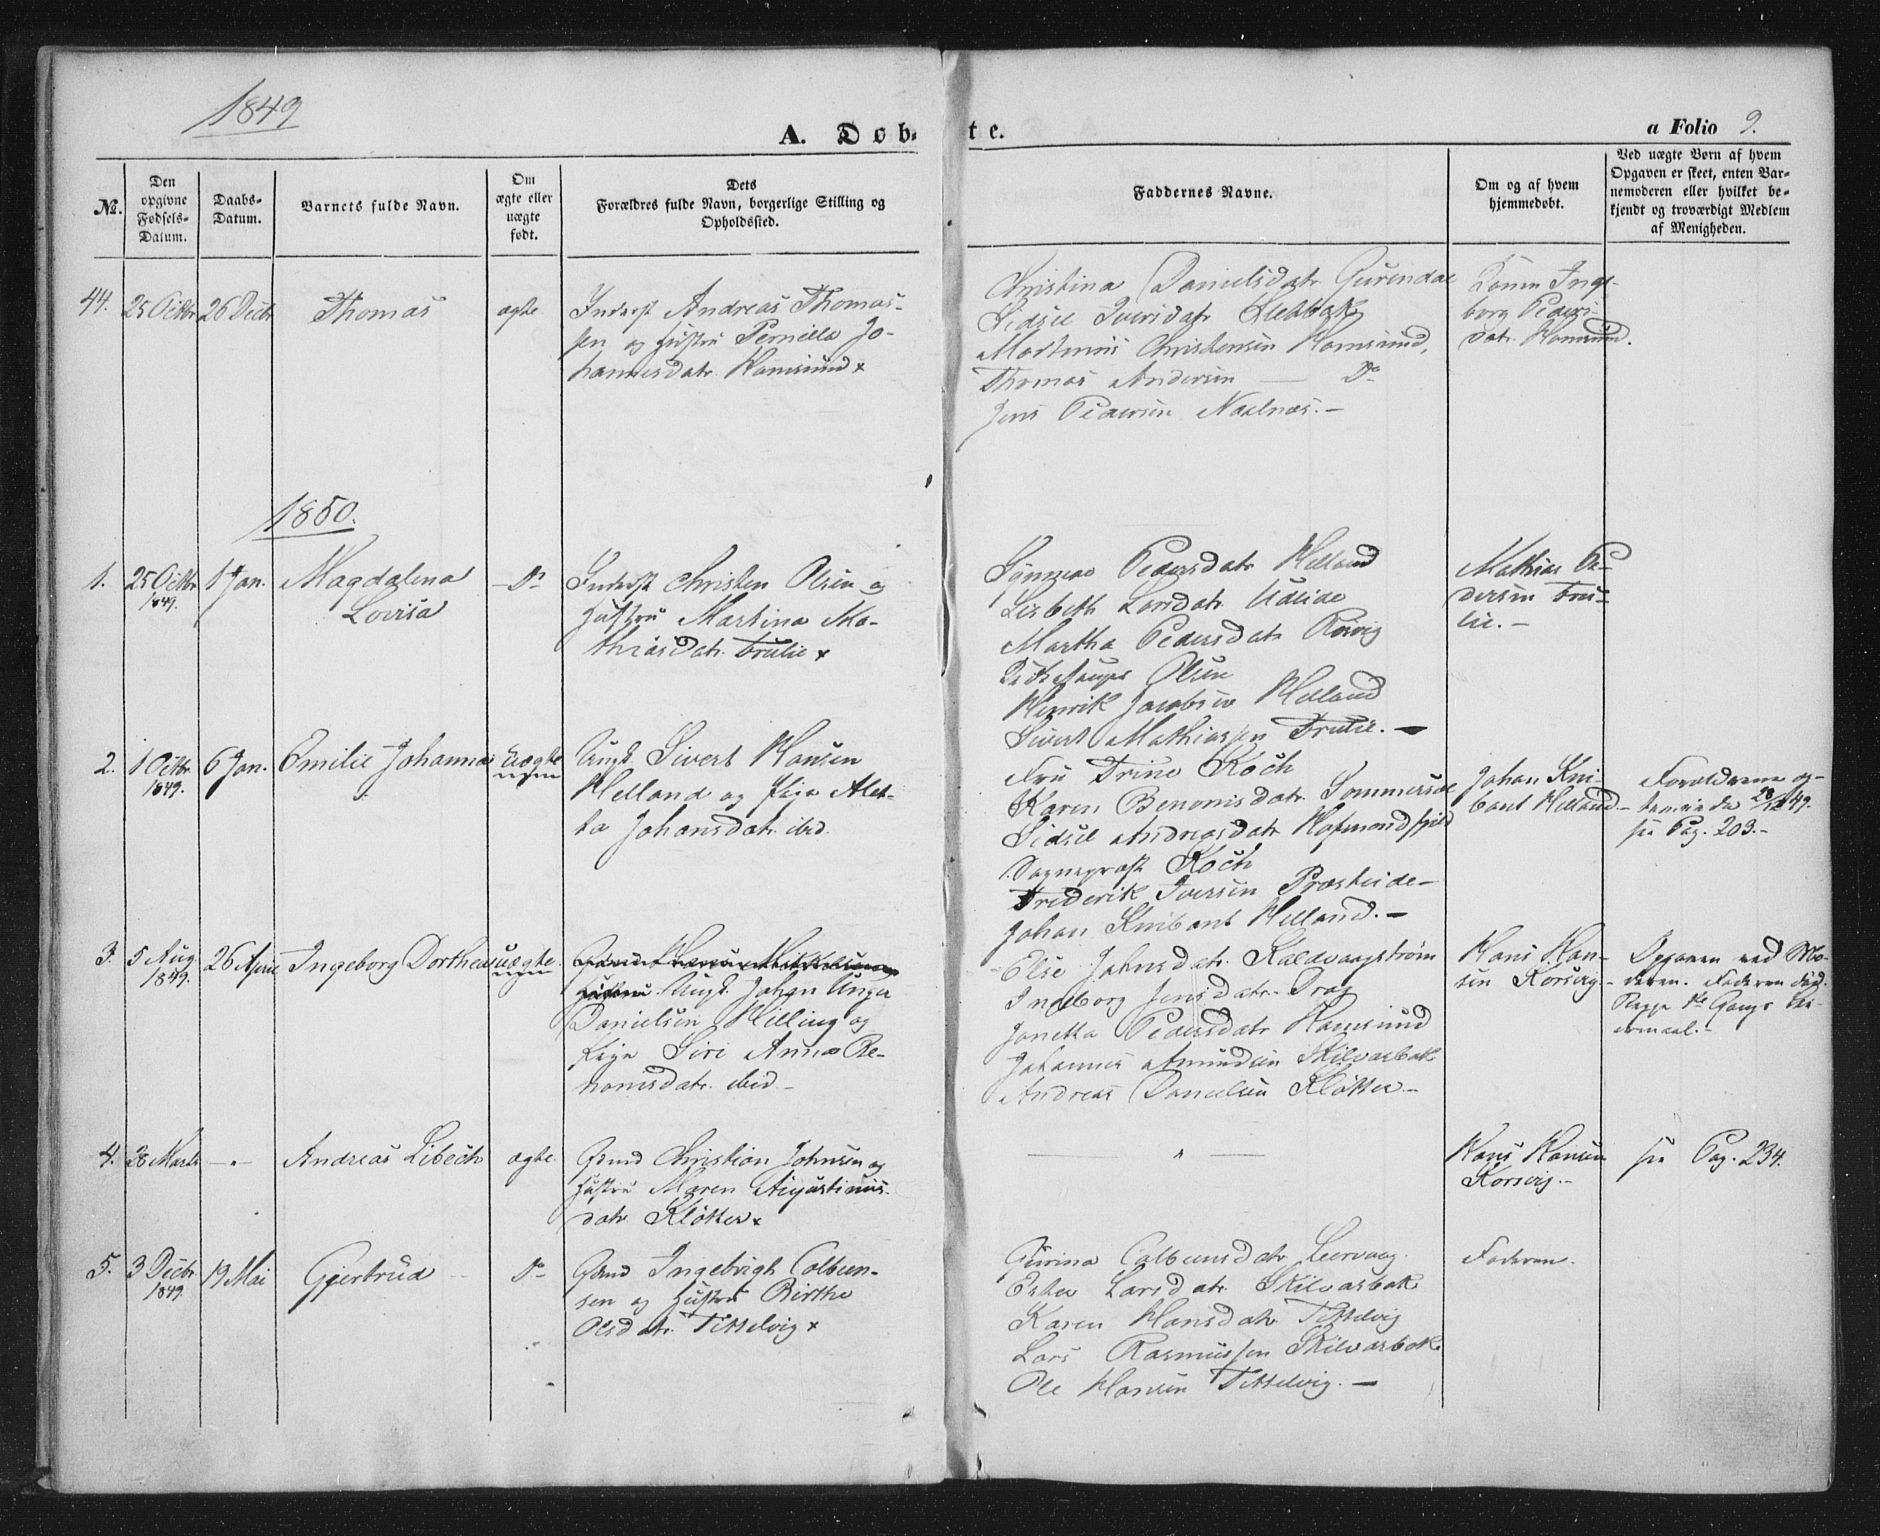 1849
A. Døb-
te.
a Folio 9.
No.
Den opgivne Fødsels-Datum.
Daabs-Datum.
Barnets fulde Navn.
Om ægte eller uægte født.
Dets Forældres fulde Navn, borgerlige Stilling og Opholdssted.
Faddernes Navne.
Om og af hvem hjemmedøbt.
Ved uægte Børn af hvem Opgaven er skeet, enten Barnemoderen eller hvilket bekjendt og troværdigt Medlem af Menigheden.
44.
25 Octbr
26 Decbr
Thomas
ægte
Inderst Andreas Thomas-
sen og Hustru Pernilla Jo-
hannesdatr. Hamsund x
Christina Danielsdatr
Sidsel Iversdatr
Martinus Christensen Hamsund,
Thomas Andersen — Do
Jens Pedersen Naalnæs. —
Konen Inge-
borg Peders-
datr. Hamsund.
1850.
1.
25 Octbr
1849.
1 Jan.
Magdalena
Lovisa
— Do
Inderst Christen Olsen og
Hustru Martina Ma-
thiasdatr. Trulie x
Pedersdatr Helland
Lisbeth Larsdatr
Martha Pedersdatr Rørvig
Olsen
Henrik Jacobsen Helland
Sivert Mathiassen Trulie. —
Mathias Pe-
dersen Tru-
lie. —
2.
1 Octbr.
1849.
6 Jan.
Emilie Johanna
Uægte
Ungk. Sivert Hansen
Helland og Pige Alet-
ta Johansdatr. ibid.
Fru Trine Koch
Karen Benonisdatr. Sommersæe
Sidsel Andreasdatr Hafmondfjeld
Sogneprest Koch
Frederik Iversen Præsteide —
Johan Knibant Helland. —
Johan Kni-
bant Helland —
Forældrene
28/12 49.
see Pag. 203. —
3.
5 Aug.
1849.
26 April
Ingeborg Dorthea
uægte
Hustru Ungk. Johan Unger
Danielsen Hilling og
Pige Siri Anna Be-
nonisdatr. ibid —
Else Johnsdatr. Kaldvaagstrøm
Ingeborg Jensdatr. Drag
Jonetta Pedersdatr Hamsund
Johannes Amundsen Skilvasbak
Andreas Danielsen Kløkker —
Hans Han-
sen Korsvig. —
Opgaven ved Mo-
deren. Faderen
Gangs Lei-
ermaal. —
4.
28 Marts
— " —
Andreas Libech
ægte.
Gmd Christian Johnsen og
Hustru Maren Augustinus-
datr Kløkker x
— " —
Hans Hansen
Korsvig. —
see Pag. 234.
5.
3 Decbr
1849.
19 Mai
Gjertrud
Do
Gmd Ingebrigt Colben-
sen og Hustru Birthe
Olsdatr. Tittelvig x
Gurina Colbensdatr Leervaag.
Ester Larsdatr. Skilvasbak
Karen Hansdatr Tittelvig
Lars Rasmussen Skilvasbak
Ole Hansen Tittelvig. —
Faderen.